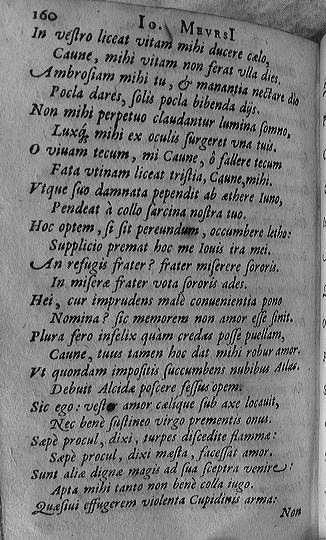 160 Io. MEVRSI
In vestro liceat vitam mihi ducere cælo,
Caune, mihi vitam non ferat vlla dies.
Ambrosiam mihi tu, & manantia nectare dio
Pocla dares, solis pocla bibenda dijs.
Non mihi perpetuo claudantur lumina somno,
Luxq; mihi ex oculis surgeret vna tuis.
O viuam tecum, mi Caune, ô fallere tecum
Fata vtinam liceat tristia, Caune, mihi.
Vtque suo damnata pependit ab æthere Iuno,
Pendeat à collo sarcina nostra tuo.
Hoc optem, si sit pereundum, occumbere letho:
Supplicio premat hoc me Iouis ira mei.
An refugis frater? frater miserere sororis.
In miseræ frater vota sororis ades.
Hei, cur imprudens malè conuenientia pono
Nomina? sic memorem non amor esse sinit.
Plura fero infelix quàm credas posse puellam,
Caune, tuus tamen hoc dat mihi robur amor.
Vt quondam impositis succumbens nubibus Atlas
Debuit Alcidæ poscere fessus opem.
Sic ego: vester amor cælique sub axe locauit,
Nec benè sustineo virgo prementis onus.
Sæpè procul, dixi, turpes discedite flammæ:
Sæpè procul, dixi mæsta, facessat amor.
Sunt aliæ dignæ magis ad sua sceptra venire:
Apta mihi tanto non benè colla iugo.
Quæsiui effugerem violenta Cupidinis arma:
Non